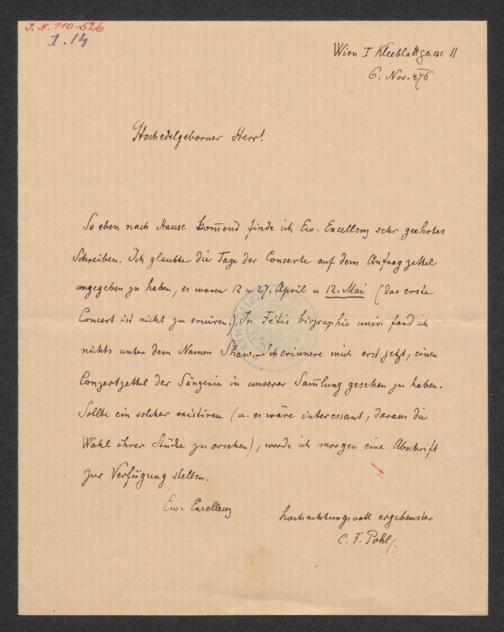 I.N. 110.526
I.14
Wien I Kleeblattgasse 11
6. Nov. 876
Hochedelgeborner Herr!
So eben nach Hause kom̅end finde ich Ew. Excellenz sehr geehrtes
Schreiben. Ich glaubte die Tage der Concerte auf dem Anfragzettel
angegeben zu haben, es waren 12 u 27. April u 12. Mai (das erste
Concert ist nicht zu eruiren.) In Fétis biographie univ. fand ich
nichts unter dem Namen Shaw. – Ich erinnere mich erst jetzt, einen
Conzertzettel der Sängerin in unserer Sam̅lung gesehen zu haben.
Sollte ein solcher existiren (u. es wäre interessant, daraus die
Wahl ihrer Stücke zu ersehen), werde ich morgen eine Abschrift
zur Verfügung stellen.
Ew. Excellenz
hochachtungsvoll ergebenster
C. F. Pohl